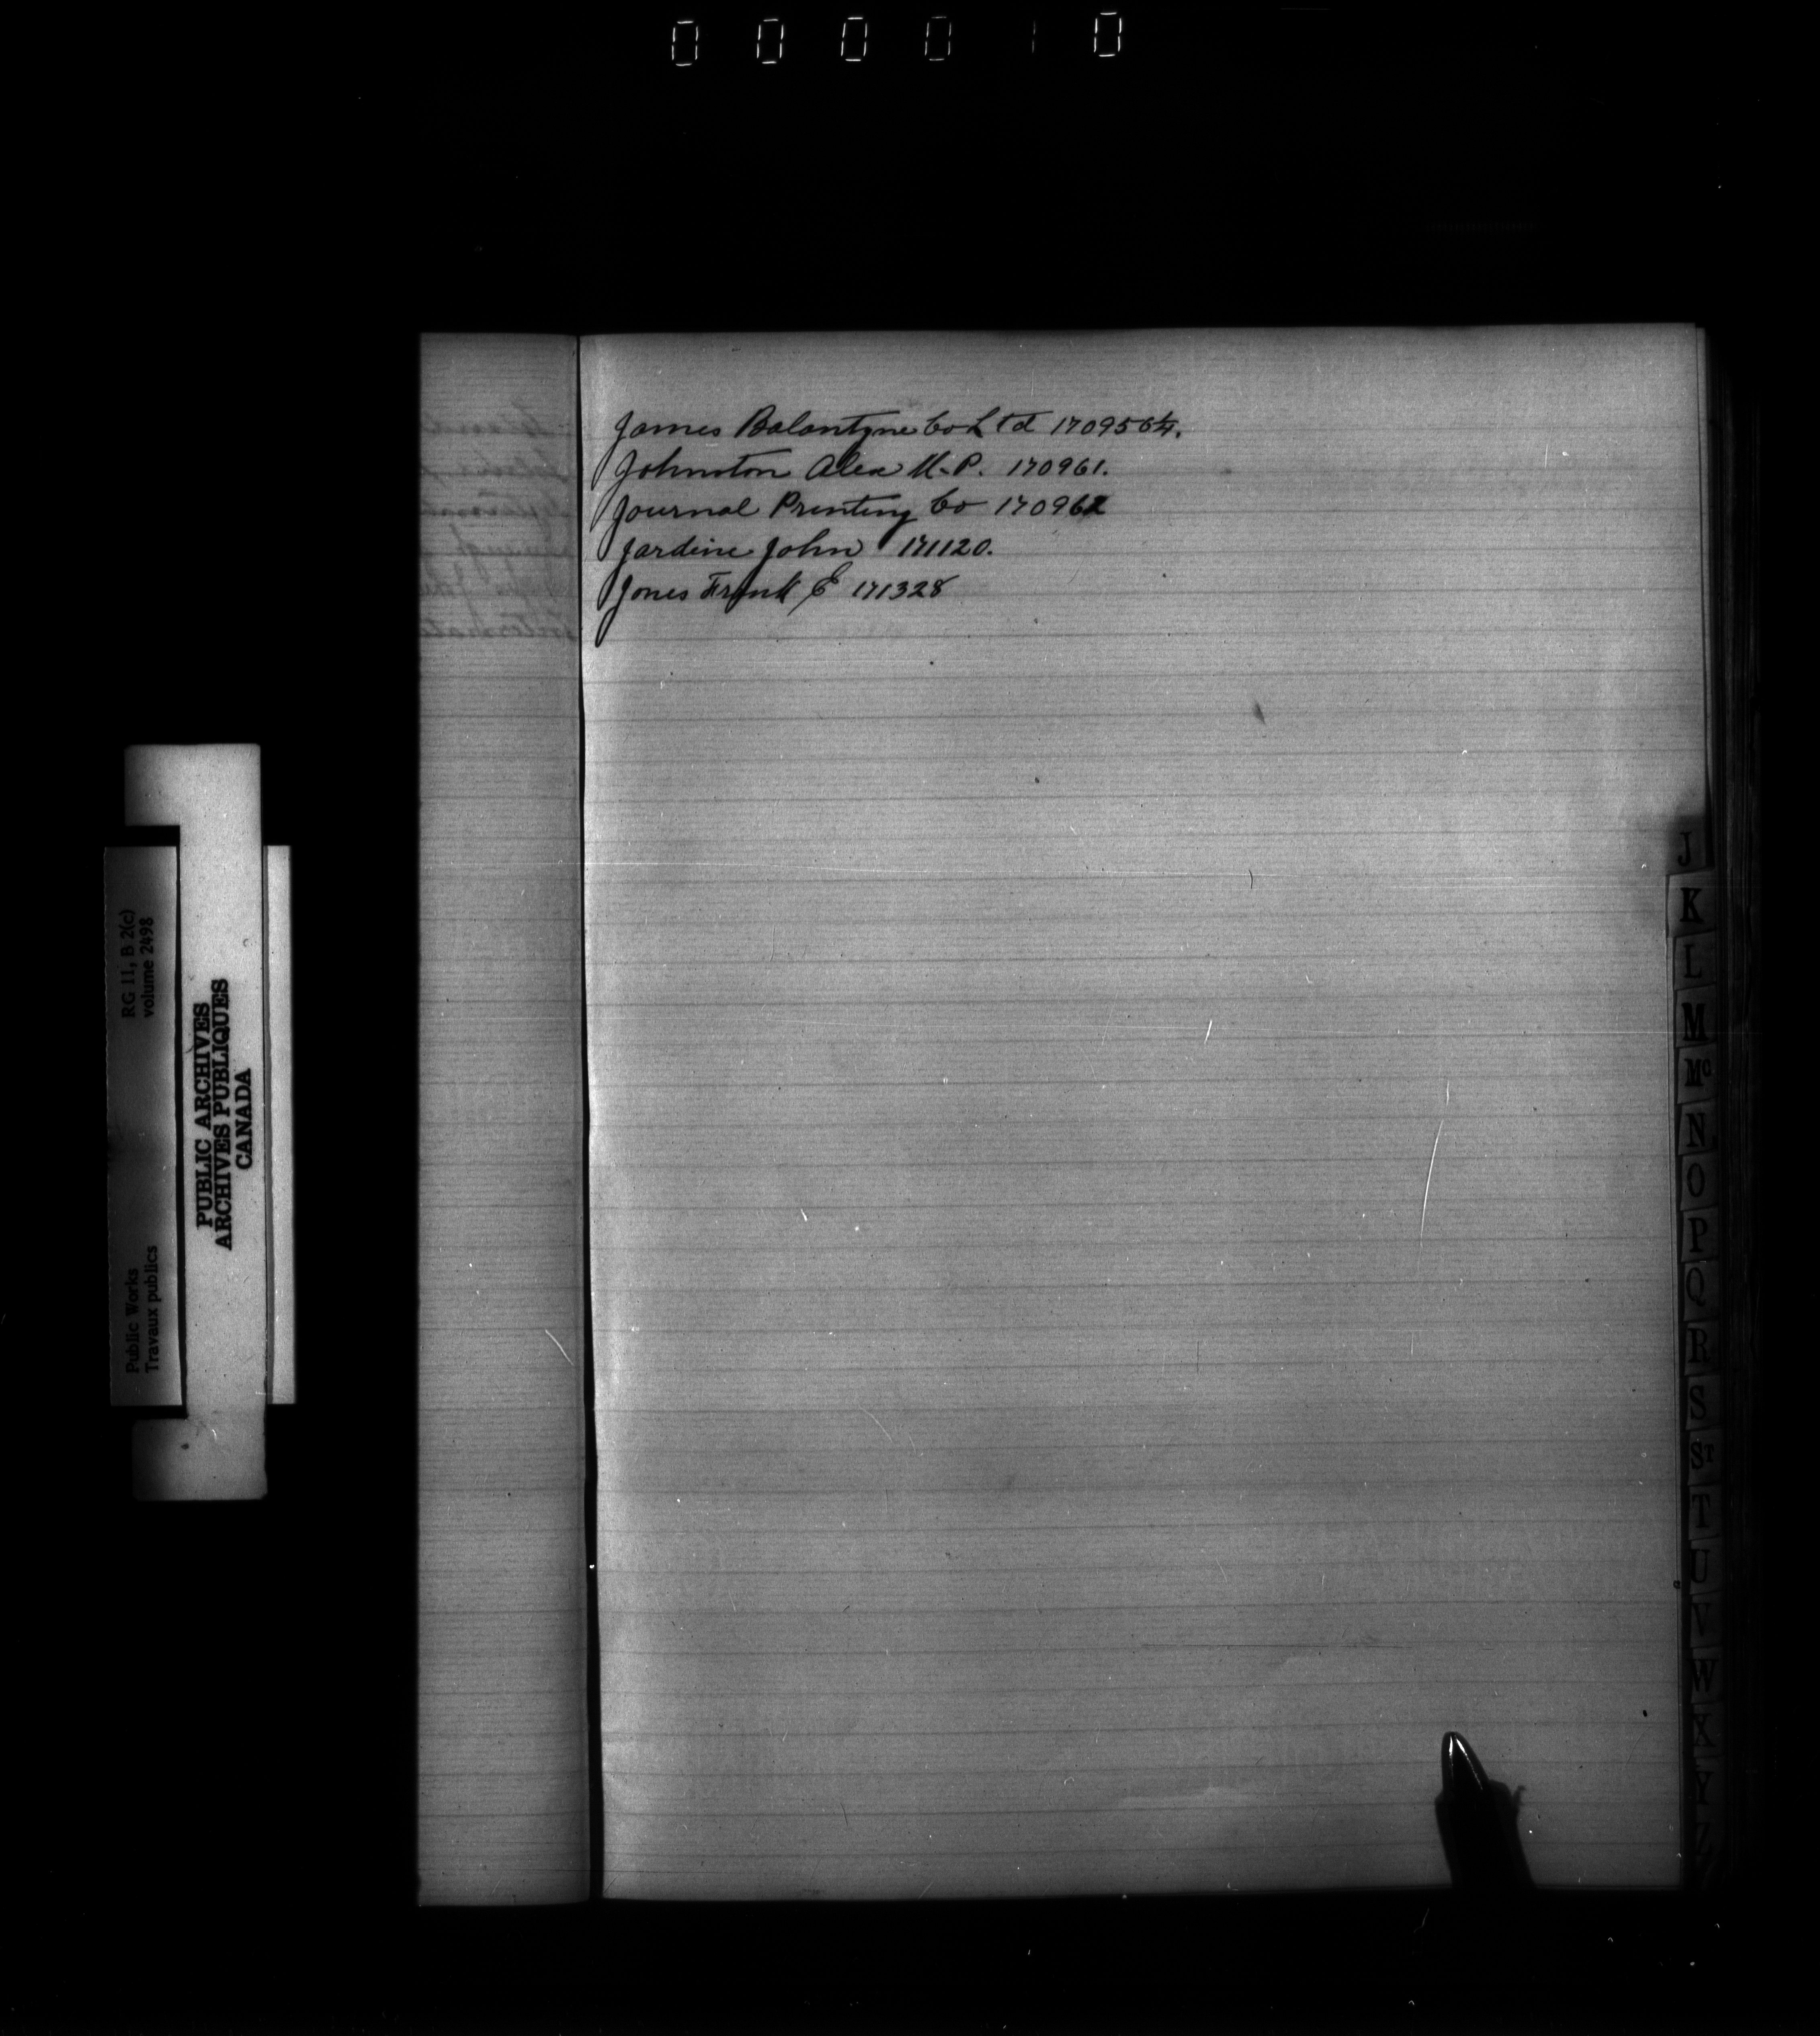 000010
James Balantyne Co Ltd 170956½.
Johnston Alex M.P. 170961.
Journal Printing Co 170962
Jardine John 171120.
Jones Frank E 171328
J
K
L
M
Mc
N
O
P
Q
R
S
ST
T
U
V
W
X
Y
Z
RG 11, B 2(c)
volume 2498
PUBLIC ARCHIVES
ARCHIVES PUBLIQUES
CANADA
Public Works
Travaux publics